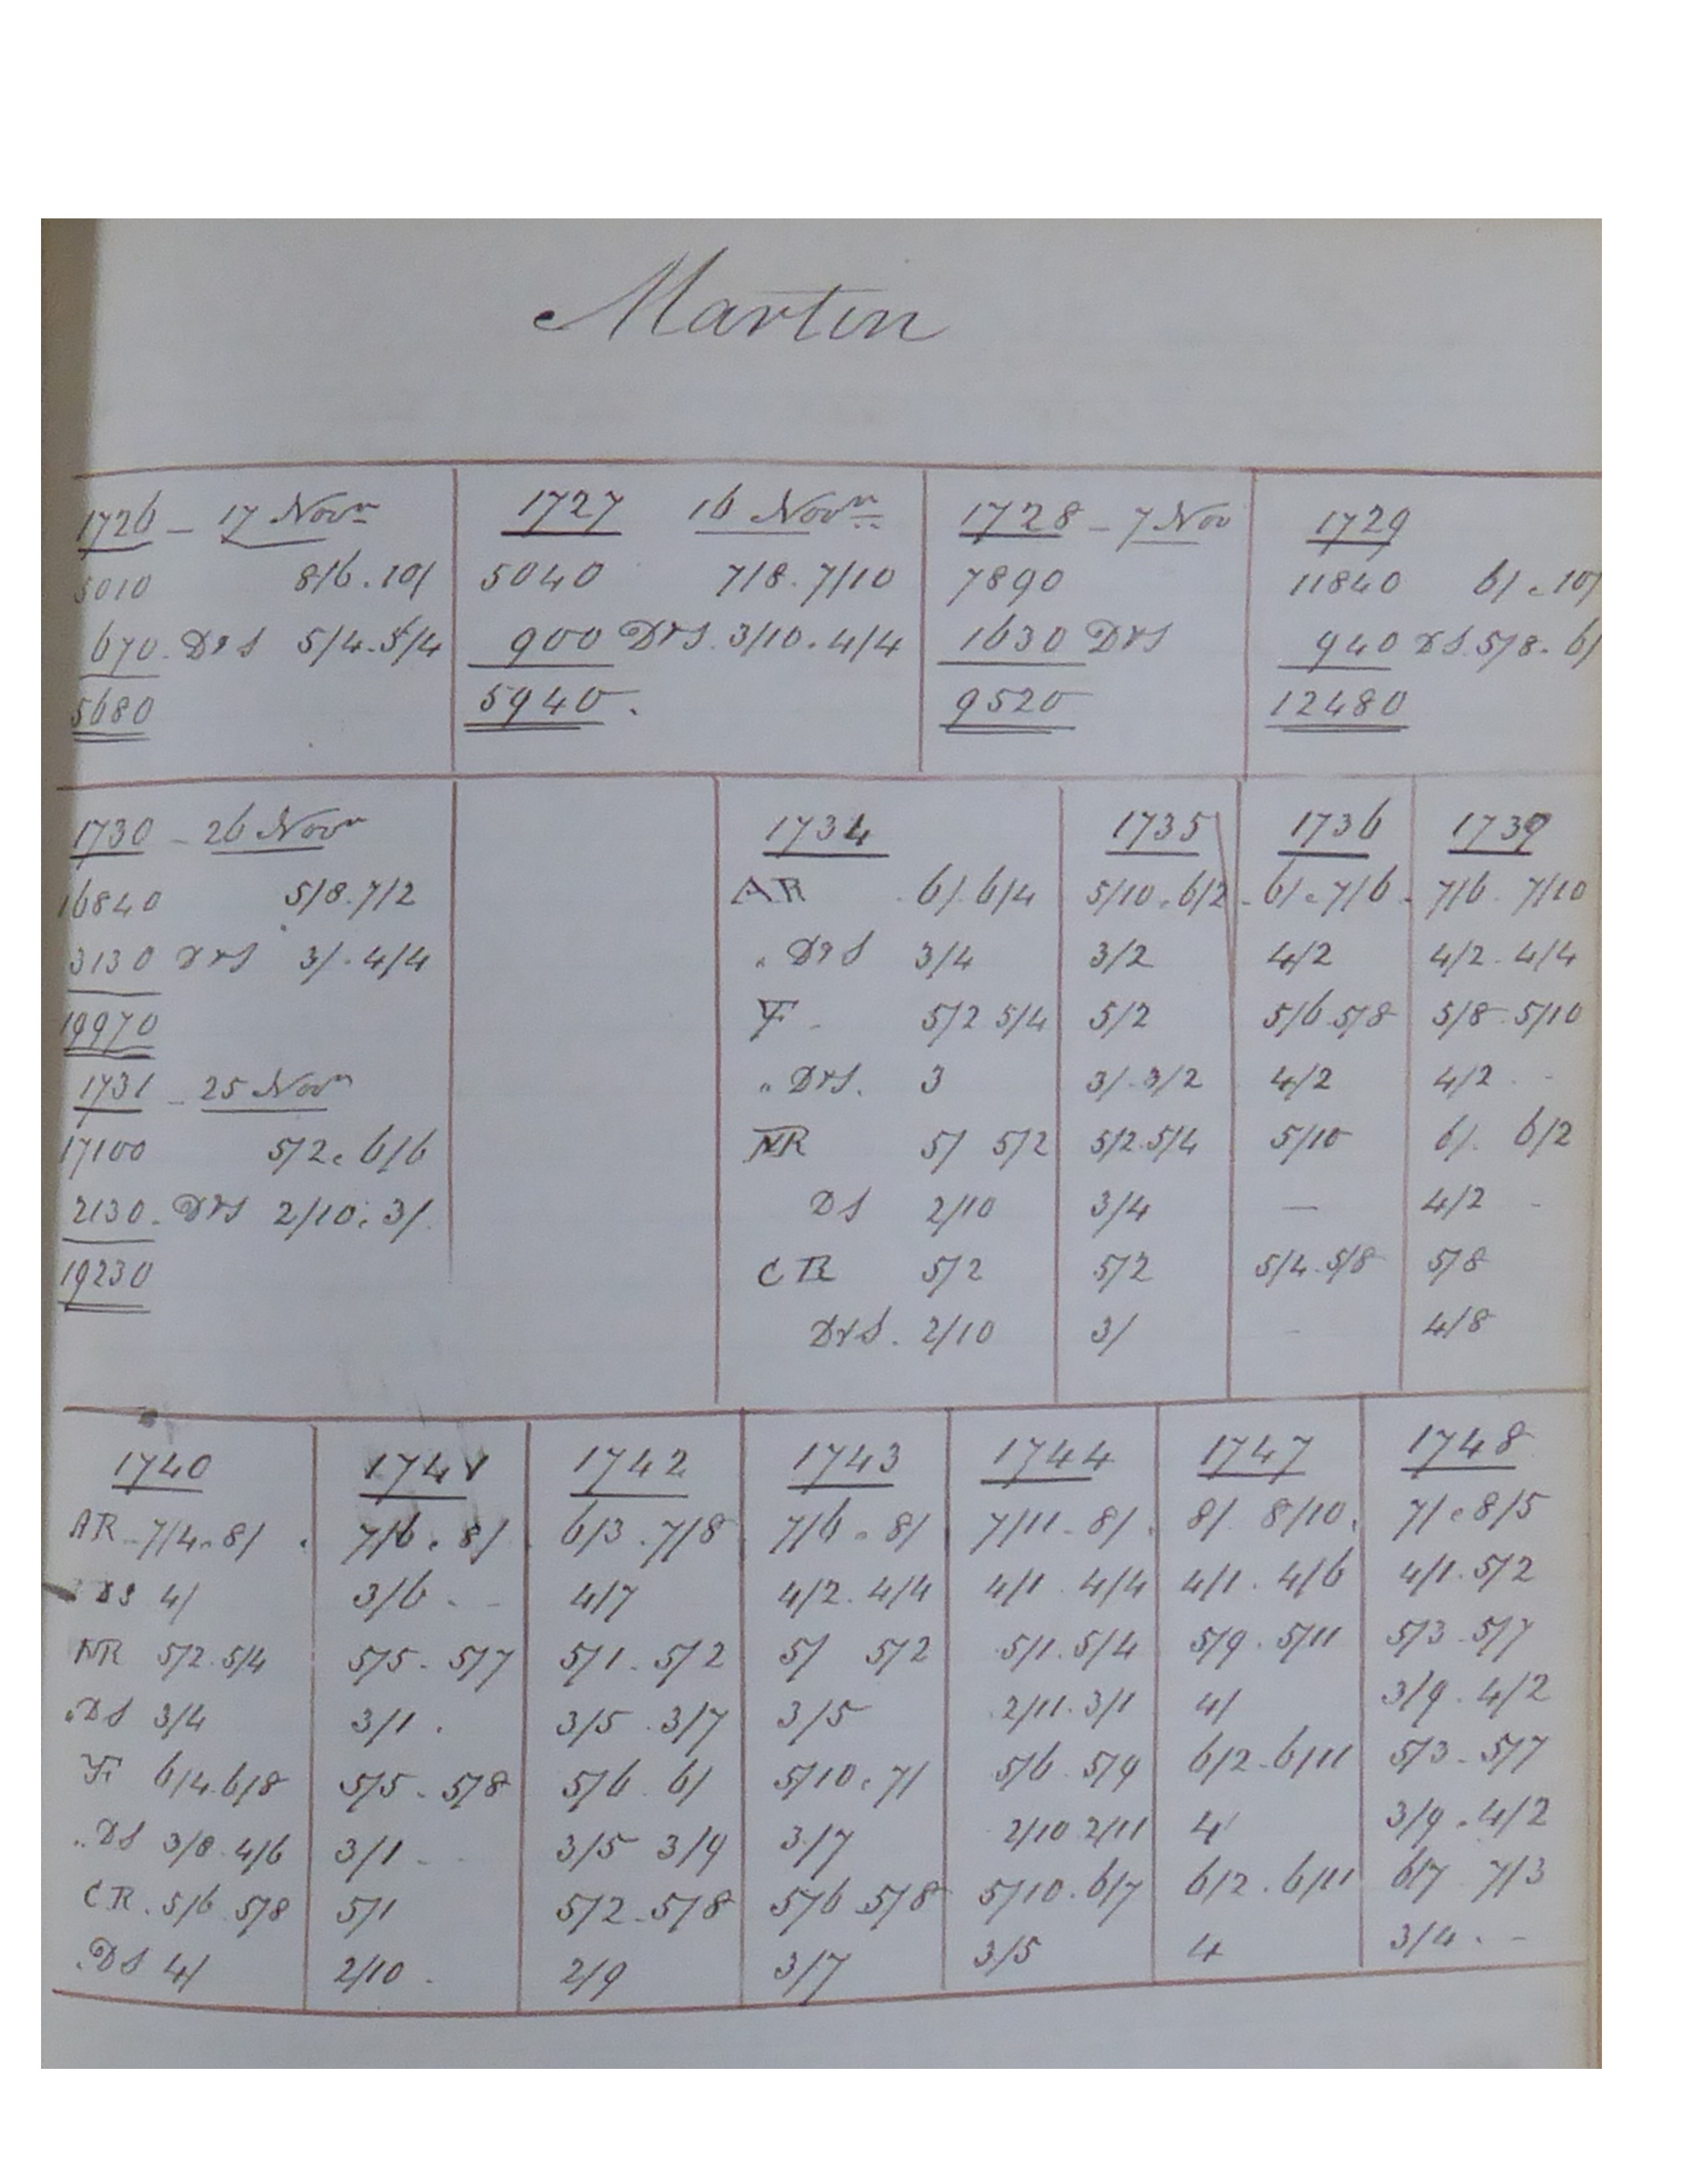 Martin
1726 - 17 Novr
5010 8/6 . 10/
670 . DrS 5/4 . 5/4
5680
1727 16 Novr
5040 7/8 . 7/10
900 DrS . 3/10 . 4/4
5940 .
1728 - 7 Nov
7890
1630 DrS
9520
1729
11840 6/ . 10/
940 DS . 5/8 . 6/
12480
1730 - 26 Novr
16840 5/8 . 7/2
3130 DrS 3/ . 4/4
19970
1731 - 25 Novr
17100 5/2 . 6/6
2130 . DrS 2/10 . 3/ .
19230
1734 1735 1736 1739
AR . 6/ . 6/4 5/10 . 6/2 . 6/ . 7/6 . 7/6 . 7/10
" DrS 3/4 3/2 4/2 4/2 . 4/4
F - 5/2 5/4 5/2 5/6 . 5/8 5/8 . 5/10
" DrS . 3 3/ . 3/2 4/2 4/2 . -
NR 5/ 5/2 5/2 . 5/4 5/10 6/ . 6/2
DS 2/10 3/4 — 4/2 -
CR 5/2 5/2 5/4 . 5/8 5/8
DrS . 2/10 3/ - 4/8
1740 1741 1742 1743 1744 1747 1748
AR - 7/4 . 8/ . 7/6 . 8/ . 6/3 . 7/8 . 7/6 . 8/ 7/11 . 8/ . 8/ . 8/10 . 7/ . 8/5
" DS 4/ 3/6 . - 4/7 4/2 . 4/4 4/1 . 4/4 4/1 . 4/6 4/1 . 5/2
NR 5/2 . 5/4 5/5 . 5/7 5/1 . 5/2 5/ 5/2 5/1 . 5/4 5/9 . 5/11 5/3 . 5/7
" DS 3/4 3/1 . 3/5 . 3/7 3/5 2/11 . 3/1 4/ 3/9 . 4/2
F 6/4 . 6/8 5/5 . 5/8 5/6 . 6/ 5/10 . 7/ 5/6 . 5/9 6/2 . 6/11 5/3 - 5/7
" DS 3/8 . 4/6 3/1 - 3/5 3/9 3/7 2/10 2/11 4/ 3/9 . 4/2
CR . 5/6 . 5/8 5/1 5/2 . 5/8 5/6 5/8 5/10 . 6/7 6/2 . 6/11 6/7 . 7/3
" DS 4/ 2/10 . 2/9 3/7 3/5 4 3/4 . -